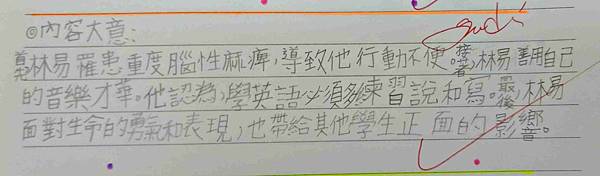 ◎內容大意:
首先林易罹患重度腦性麻痺,導致他行動不便。接著,林易善用自己
的音樂才華。他認為,學英語必須多練習說和寫。最後,林易
面對生命的勇氣和表現,也帶給其他學生正面的影響。